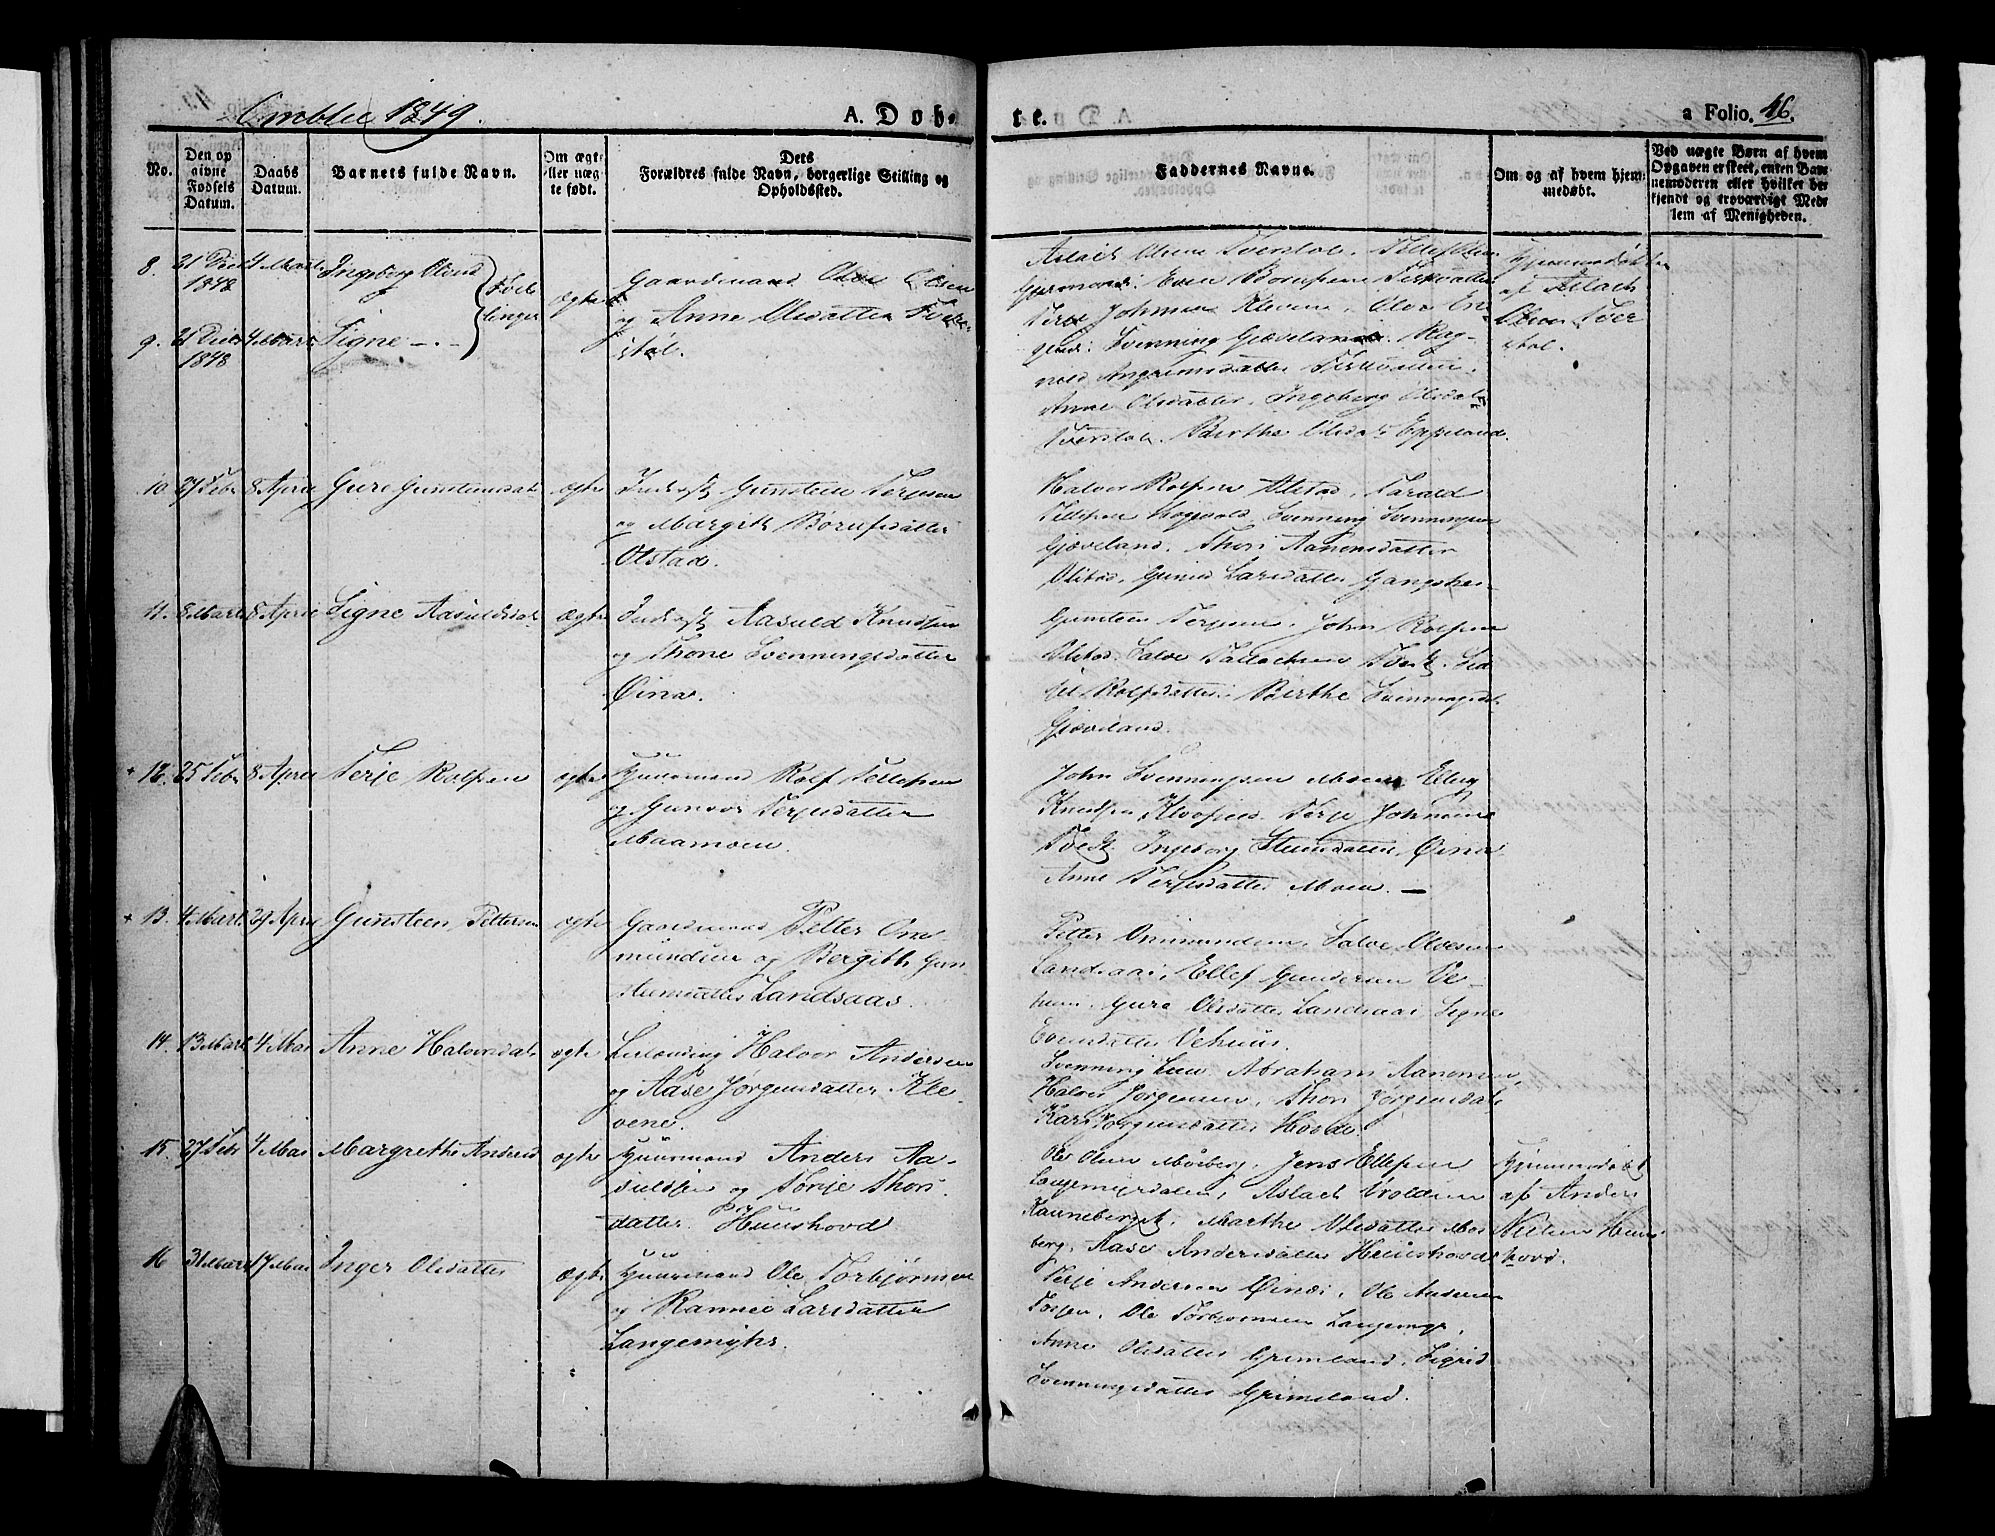 Omblie 1849.
A. Døb-
te.
a Folio. 46.
No.
Den op
givne
Fødsels
Datum.
Daabs
Datum.
Barnets fulde Navn.
Om ægt-
eller uæg-
te født.
Dets
Forældres fulde Navn, borgerlige Stilling og
Opholdssted.
Faddernes Navne.
Om og af hvem hjem-
medøbt.
Ved uægte Børn af hvem
Opgaven er skeet, enten Bar-
nemoderen eller hvilket be-
kjendt og troværdigt Med-
lem af Menigheden.
8. 21 Decb 1848 4 Marts Ingeborg Olvsd
9. 21 Decb 1848 4 Marts Signe —.—
Tvil-
linger
ægte
Gaardmand Olsen
og Anne Olsdatter Tver-
støl.
Aslach Olsen Tverstøl. Tellef
Even
Terje Johnsen Klevene, Olve En-
Svenning Gjæveland. Rag-
nild
Anne Olsdatter, Ingeborg Olsdat
Tverstøl. Berthe Olsdatr Eppeland.
Hjemmedøbt
af Aslach
Olsen Tver
støl.
10. 27 Febr 8 April Gure Gunsteinsdat ægte
Inderst Gunstein Terjesen
og Margith Børufsdatter
Olstad.
Halvor Rolfsen Olstad, Tarald
Tellefsen Svenning Svenningsen
Gjæveland. Thori Aanensdatter
Olstad, Larsdatter
11. 8 Marts 8 April Signe Aasuldsdat. ægte
Inderst Aasuld Knudsen
og Thone Svenningsdatter
Øinæs.
Gunstein Terjesen, John Rolfsen
Olstad. Salve Tallachsen Tveit.
Rolfsdatter, Birthe Svenningsdt.
Gjæveland.
12. 25 Febr 8 April Terje Rolfsen ægte
Huusmand Rolf Tellefsen
og Gunvor Terjesdatter
Maamoen.
John Svenningsen Moen, Ellef
Knudsen Terje Johnsen
Tveit. Ingeborg Steensdatter, Øinæs
Anne Terjesdatter Moen. —
13. 4 Marts 29 April Gunsteen Pettersen ægte
Gaardmand Petter Om-
mundsen og Bergith Gun-
steensdatter Landsaas.
Petter Ommundsen, Salve Olvesen
Landsaas, Ellef Gundersen Ve-
huus. Gure Olsdatter Landsaas Signe
Evensdatter Vehuus.
14. 13 Marts 4 Mai Anne Halvorsdat. ægte
Leilænding Halvor Andersen
og Aase Jørgensdatter Kle-
vene.
Svenning Abraham Aanonsen,
Halvor Jørgensen, Thori Jørgensdat.
Kari Jørgensdatter Hovde.
15. 27 Febr 4 Mai Margrethe Andersd ægte
Huusmand Anders Aa-
suldsen og Torje Thors-
datter. Huushovd
Ole Olsen Mosberg, Jens Ellefsen
Langemyrdalen, Aslach
Marthe Olsdatter Mos-
berg, Aase Andersdatter Huushovd
Hjemmedøbt
af Anders
Nielsen Huus
hovd.
16 31 Marts 17 Mai Inger Olsdatter ægte
Huusmand Ole Torbjørnsen
og Rannei Larsdatter
Langemyhr.
Terje Andersen Øinæs, Ole Andersen
Ole Torbjørnsen Langemyr,
Anne Olsdatter Grimeland, Sigrid
Svenningsdatter Grimeland.